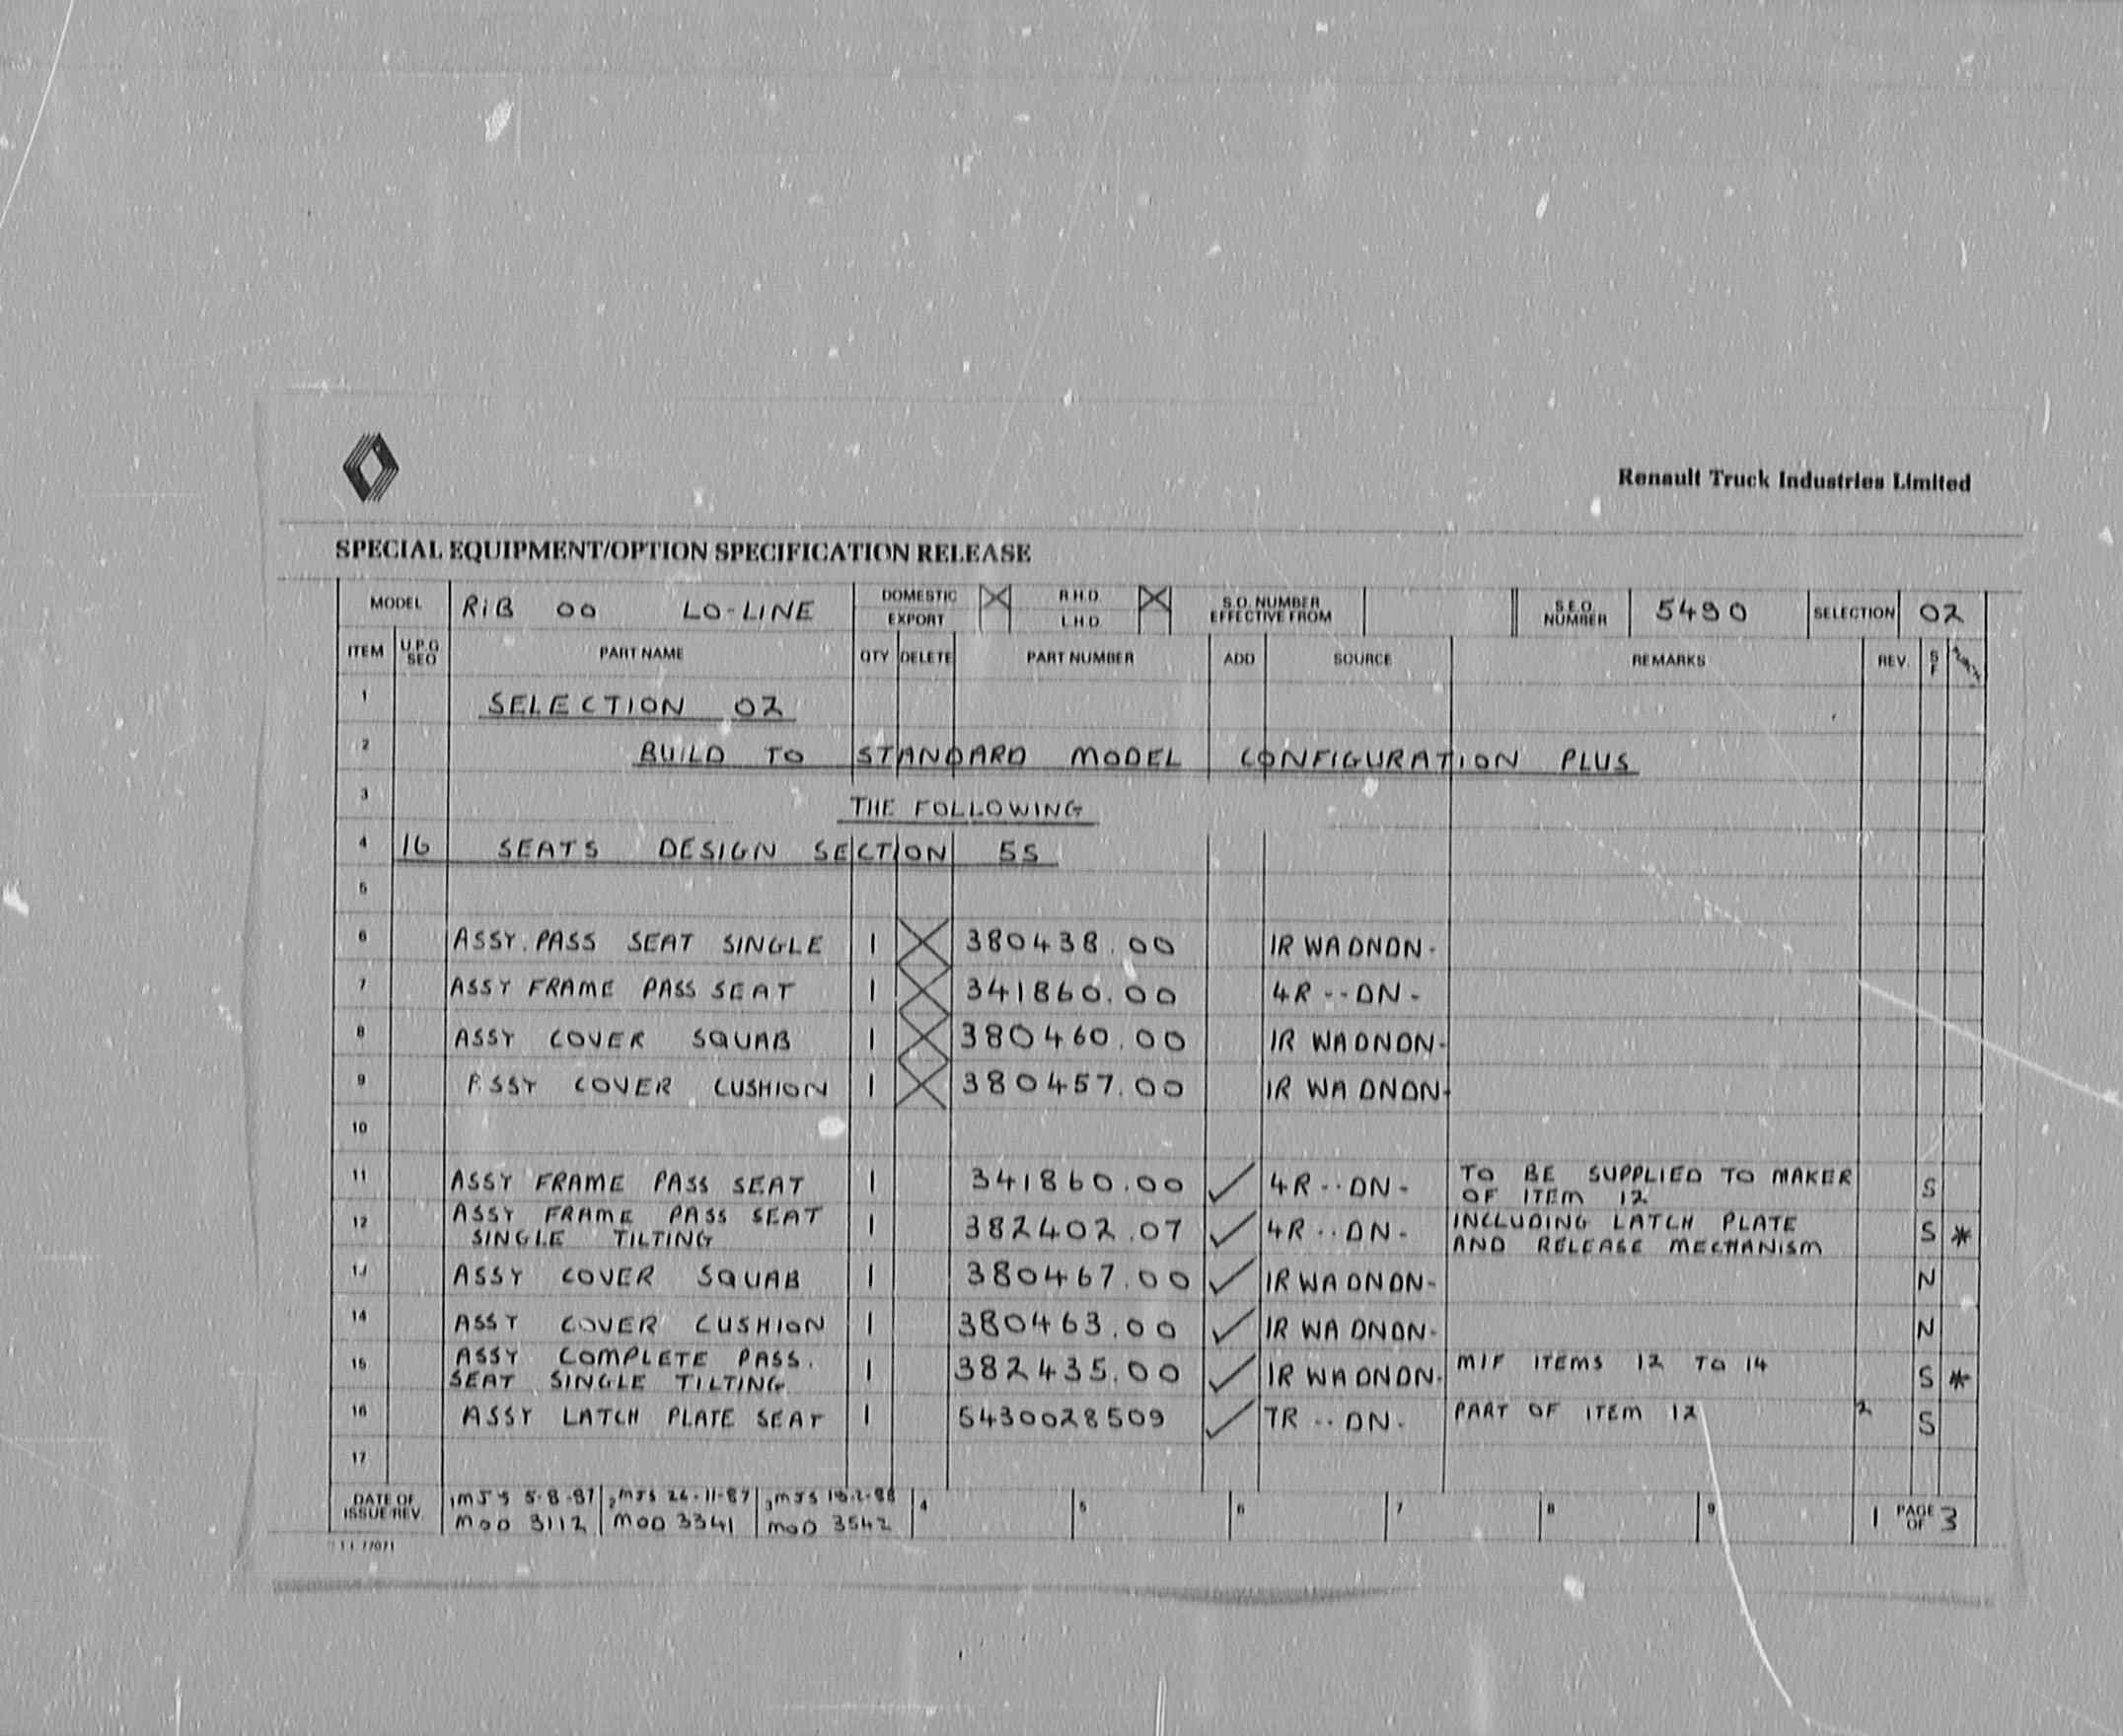 Renault Truck Industries Limited
SPECIAL EQUIPMENT/OPTION SPECIFICATION RELEASE
MODEL RiB 00 LO-LINE DOMESTIC R.H.D. S.O. NUMBER S.E.O. 5490 SELECTION 02
EXPORT L.H.D. EFFECTIVE FROM NUMBER
ITEM U.P.G SEO PART NAME QTY DELETE PART NUMBER ADD SOURCE REMARKS REV. S F
1 SELECTION 02
2 BUILD TO STANDARD MODEL CONFIGURATION PLUS
3 THE FOLLOWING
4 16 SEATS DESIGN SECTION 5S
5
6 ASSY. PASS SEAT SINGLE 1 380438.00 1R WADNDN-
7 ASSY FRAME PASS SEAT 1 341860.00 4R --DN-
8 ASSY COVER SQUAB 1 380460.00 1R WADNDN-
9 ASSY COVER CUSHION 1 380457.00 1R WADNDN-
10
11 ASSY FRAME PASS SEAT 1 341860.00 ✓ 4R--DN- TO BE SUPPLIED TO MAKER S
OF ITEM 12
12 ASSY FRAME PASS SEAT 1 382402.07 ✓ 4R--DN- INCLUDING LATCH PLATE S *
SINGLE TILTING AND RELEASE MECHANISM
13 ASSY COVER SQUAB 1 380467.00 ✓ 1R WADNDN- N
14 ASSY COVER CUSHION 1 380463.00 ✓ 1R WADNDN- N
15 ASSY COMPLETE PASS. 1 382435.00 ✓ 1R WADNDN- MIF ITEMS 12 TO 14 S *
SEAT SINGLE TILTING
16 ASSY LATCH PLATE SEAT 1 5430028509 ✓ 7R --DN- PART OF ITEM 12 2 S
17
DATE OF 1 MJS 5-8-87 2 MJS 26-11-87 3 MJS 18-2-88 4 5 6 7 8 9 1 PAGE OF 3
ISSUE/REV. MOD 3112 MOD 3341 MOD 3542